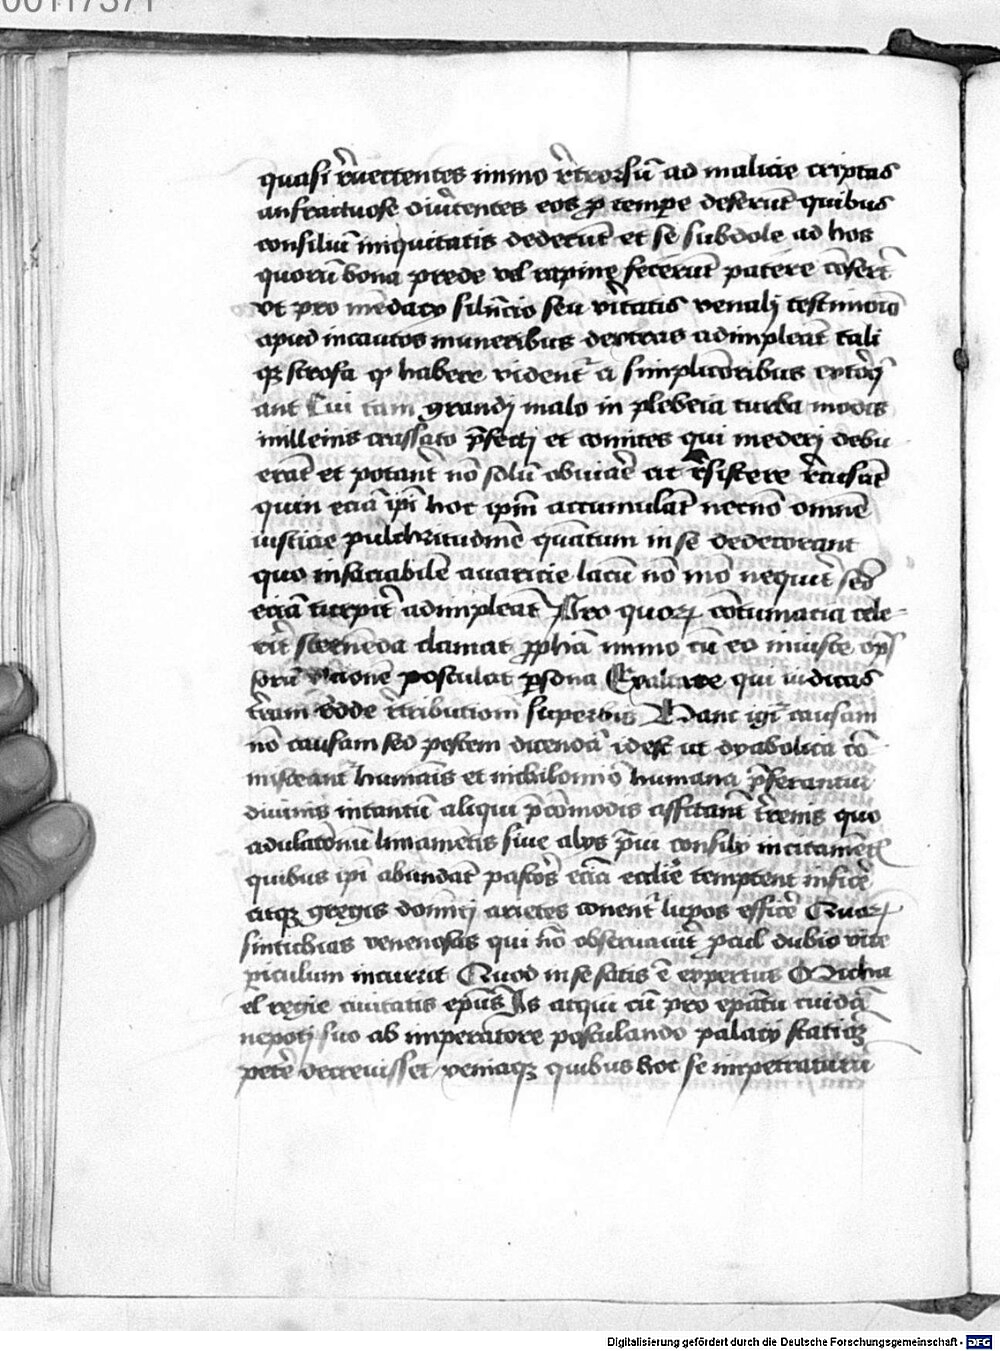 00117371
quasi r̄uertentes immo r̄trorsū ad malicie criptas
anfractuose diūtentes eos ꝓ tempe deserūt quibus
consiliū iniquitatis dederūt et se subdole ad hos
quorū bona prede vel rapine fecerūt patere cōfert
vt pro mēdacy silēcio seu v̄itatis venalj testimōio
apud incautos muneribus dextras adimpleāt tali
qꝫ scrofa habere vident᷑ a simplicioribus
ant Cui tam grandj malo in plebeia turba modis
milleinis crassato p̄fectj et comites qui mederj debu
erāt et potant᷑ nō solū obuiāe ac r̄sistere r̄cusāt
quin eciā ip̄i hoc ipm̄ accumulāt necnō omnē
iusticie pulchritudinē quātum in se dedecorant
quo insaciabilē auaricie lacū nō mō nequiūt sed
eciā turpit᷑ adimpleāt Pro quoꝝ cōtumacia cele
rit᷑ sternēda clamat ꝓphiā immo cū eo iniuste opp̄s
sorū v̄cionē postulat ꝑsona Exaltare qui iudicas
t̄ram r̄dde r̄tributiom̄ superbis Hanc igi᷑ causam
nō causam sed pestem dicendā idest ut dyabolica cō
misceant᷑ humāis et nichilomiō humana p̄ferantur
diuinis intantū aliqui p̄cōmodis affitant᷑ t̄renis quo
adulatōnū linamētis siue alys p̄ui consily incitamētꝭ
quibus ip̄i abundāt pastoēs eciā ecclīe temptent inficē
atqꝫ gregis domnicj arietes conent᷑ lupos efficē Quoꝝ
sintichias venenosas qui nō obseruauit᷑ ꝓcul dubio vite
ꝑiculum incurrit Quod in se satis ē expertus Micha
el regie ciuitatis ep̄us Is atqui cū pro ep̄atu cuidā
nepotj suo ab imperatore postulando palacy statiqꝫ
petē decreuisset veniaqꝫ quibus hoc se impetraturū
Digitalisierung gefördert durch die Deutsche Forschungsgemeinschaft - DFG